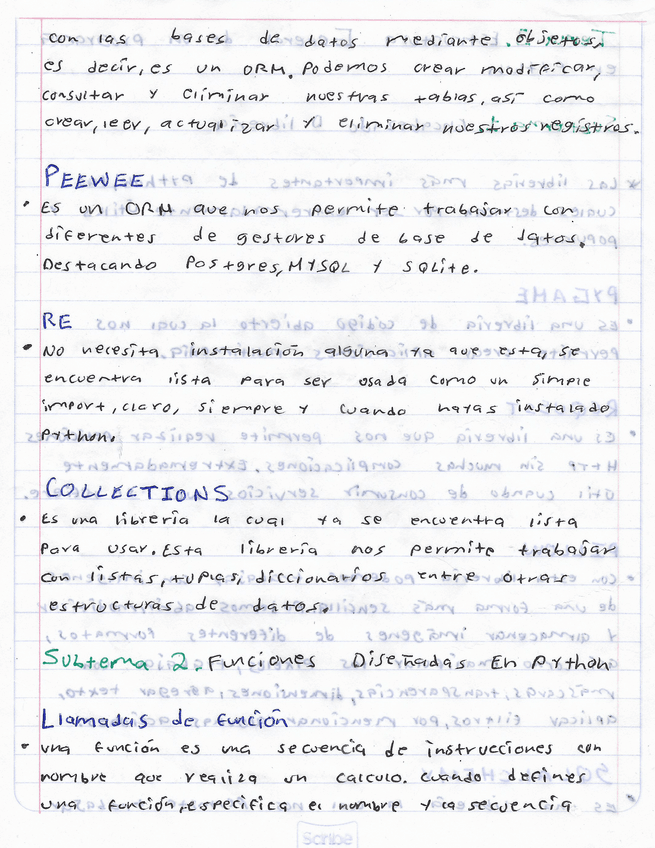 con las bases de datos mediante objetos,
es decir, es un ORM. Podemos crear modificar,
consultar y eliminar nuestras tablas, así como
crear, leer, actualizar y eliminar nuestros registros.
PEEWEE
• Es un ORM que nos permite trabajar con
diferentes de gestores de base de datos.
Destacando Postgres, MYSQL y SQLite.
RE
• No necesita instalación alguna ya que esta, se
encuentra lista para ser usada como un simple
import, claro, siempre y cuando hayas instalado
Python.
COLLECTIONS
• Es una librería la cual ya se encuentra lista
para usar. Esta librería nos permite trabajar
con listas, tuplas, diccionarios entre otras
estructuras de datos.
Subtema 2. Funciones Diseñadas En Python
Llamadas de función
• una función es una secuencia de instrucciones con
nombre que realiza un calculo. cuando defines
una función, especifica el nombre y la secuencia
Scribe